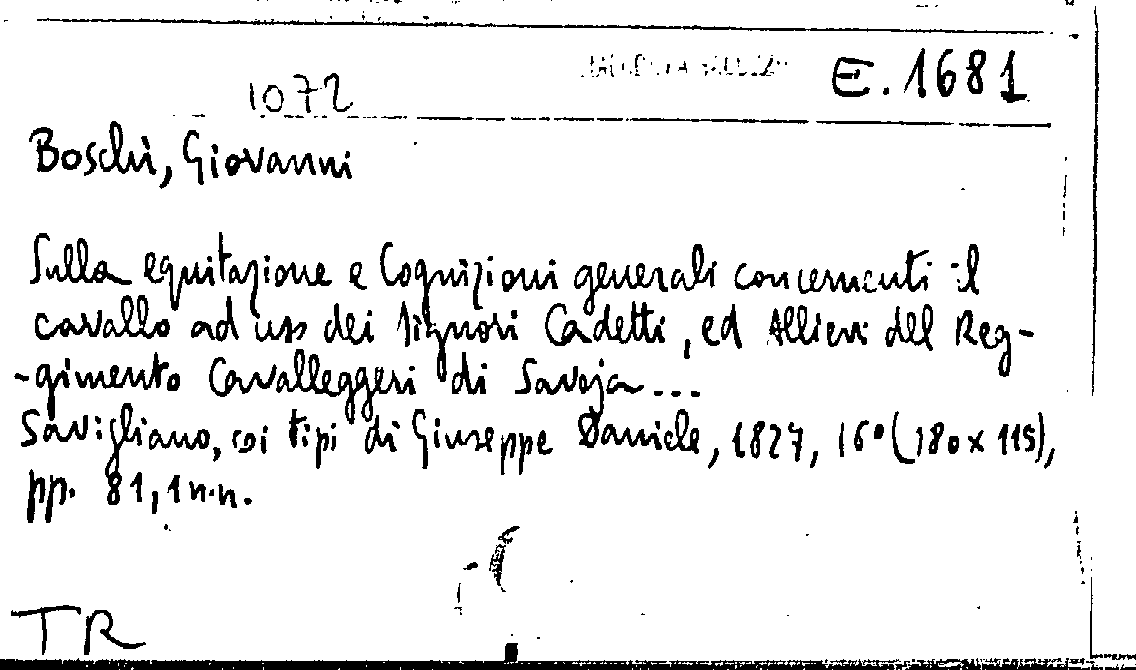 E. 1681
1072
Boschi, Giovanni
Sulla equitazione e Cognizioni generali concernenti il
cavallo ad uso dei Signori Cadetti, ed Allievi del Reg-
-gimento Cavalleggeri di Savoja...
Savigliano, coi tipi di Giuseppe Daniele, 1827, 16° (180 x 115),
pp. 81, 1 n.n.
TR